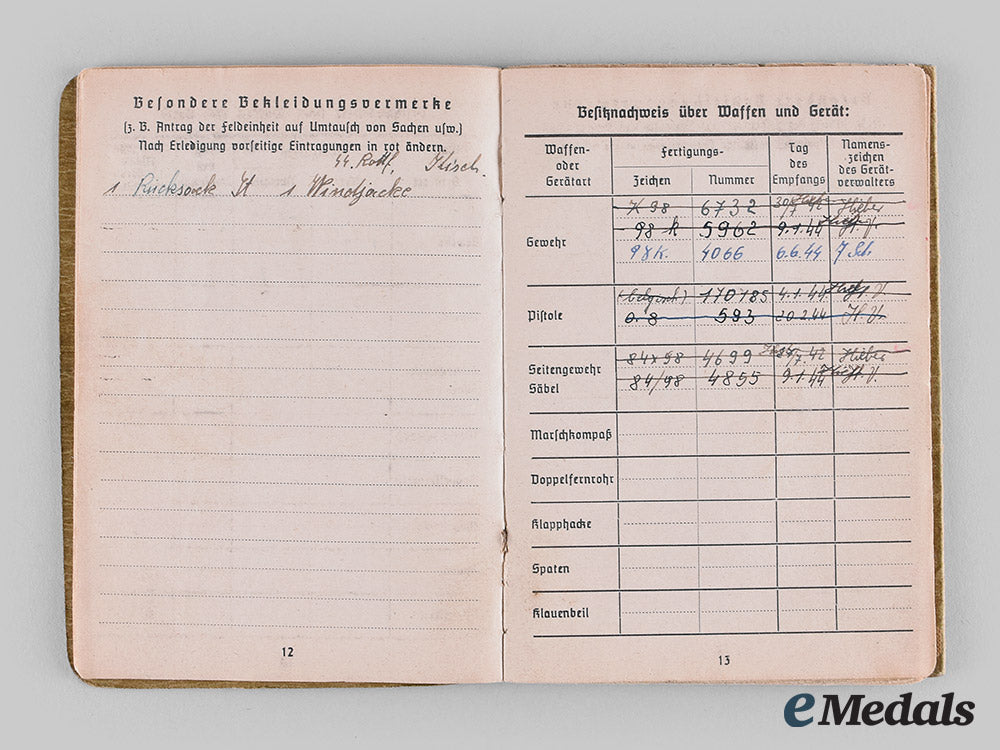 Besondere Bekleidungsvermerke
(z. B. Antrag der Feldeinheit auf Umtausch von Sachen usw.)
Nach Erledigung vorseitige Eintragungen in rot ändern.
1 Rucksack St 1 Windjacke
12
Besitznachweis über Waffen und Gerät:
Waffen- oder Gerätart
Fertigungs-
Zeichen Nummer
Tag des Empfangs
Namens- zeichen des Gerät- verwalters
Gewehr
K 98 6732 Hieber
98 k 5962 9.1.44
98 k. 4066 6.6.44
Pistole
(belgisch) 170185 4.1.44
0.8 593 20.2.44
Seitengewehr
Säbel
84x98 4699 Hieber
84/98 4855 9.1.44
Marschkompaß
Doppelfernrohr
Klapphacke
Spaten
Klauenbeil
13
eMedals